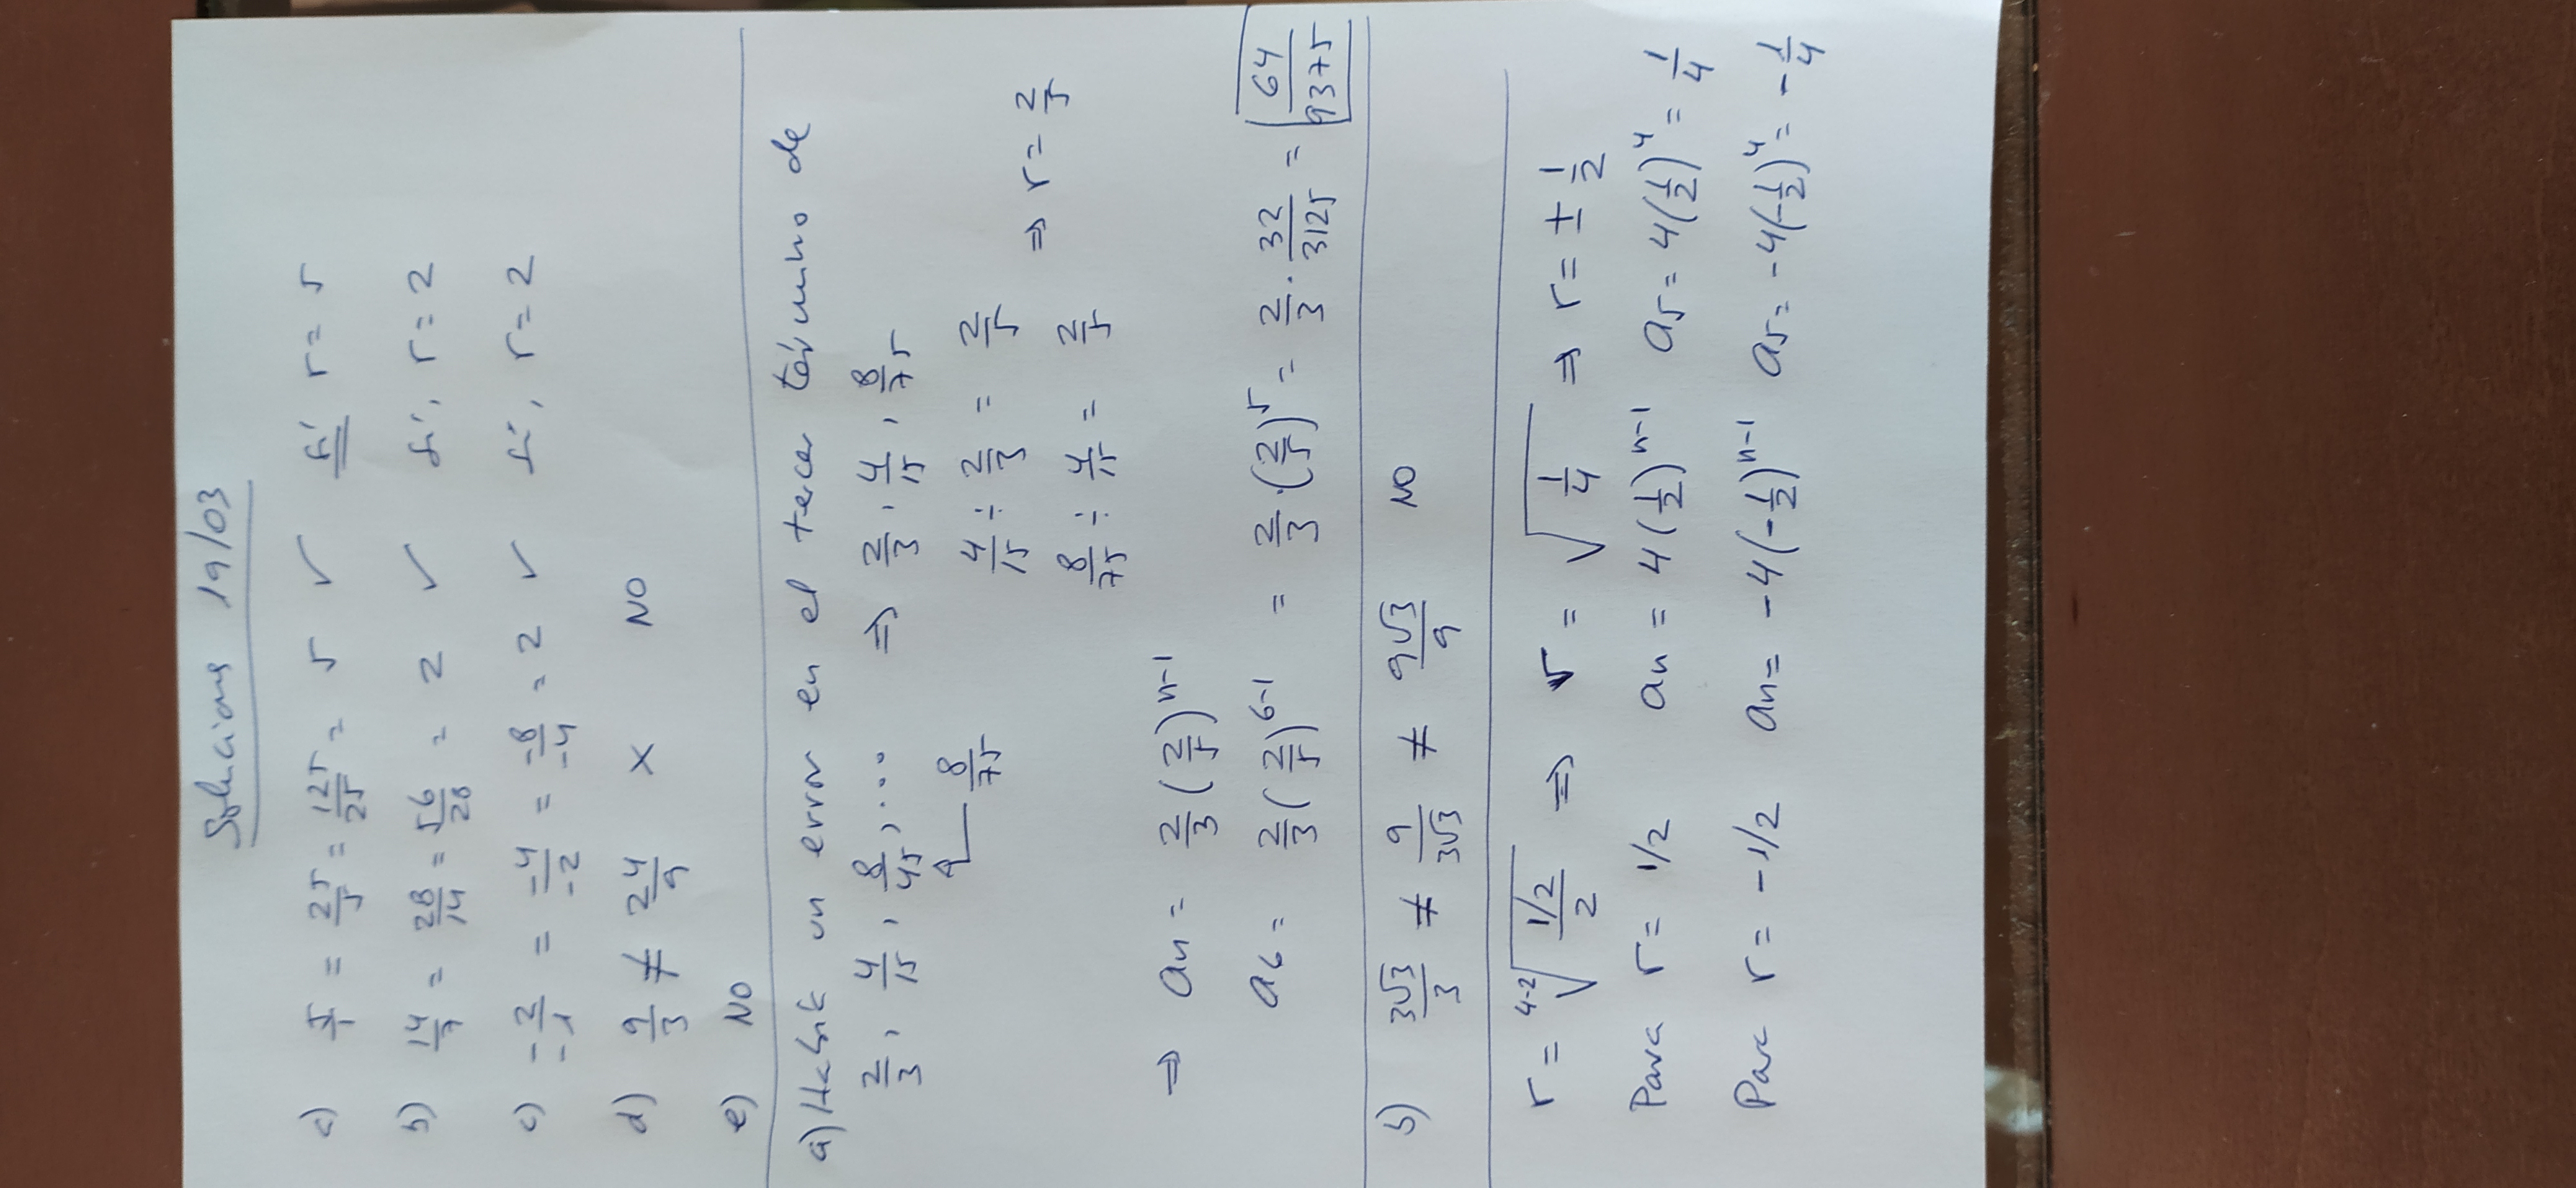 Soluciones 19/03
a) 5/1 = 25/5 = 125/25 = 5 ✓ Sí r = 5
b) 14/7 = 28/14 = 56/28 = 2 ✓ Sí, r = 2
c) -2/-1 = -4/-2 = -8/-4 = 2 ✓ Sí, r = 2
d) 9/3 ≠ 24/9 X NO
e) NO
a) Había un error en el tercer término de
2/3, 4/15, 8/45, ... ⇒ 2/3, 4/15, 8/75
8/75
4/15 ÷ 2/3 = 2/5
⇒ r = 2/5
8/75 ÷ 4/15 = 2/5
⇒ an = 2/3 (2/5)^n-1
a6 = 2/3 (2/5)^6-1 = 2/3 · (2/5)^5 = 2/3 · 32/3125 = 64/9375
b) 3√3/3 ≠ 9/3√3 ≠ 9√3/9 NO
r = 4-2√(1/2 / 2) ⇒ r = √(1/4) ⇒ r = ± 1/2
Para r = 1/2 an = 4(1/2)^n-1 a5 = 4(1/2)^4 = 1/4
Para r = -1/2 an = -4(-1/2)^n-1 a5 = -4(-1/2)^4 = -1/4